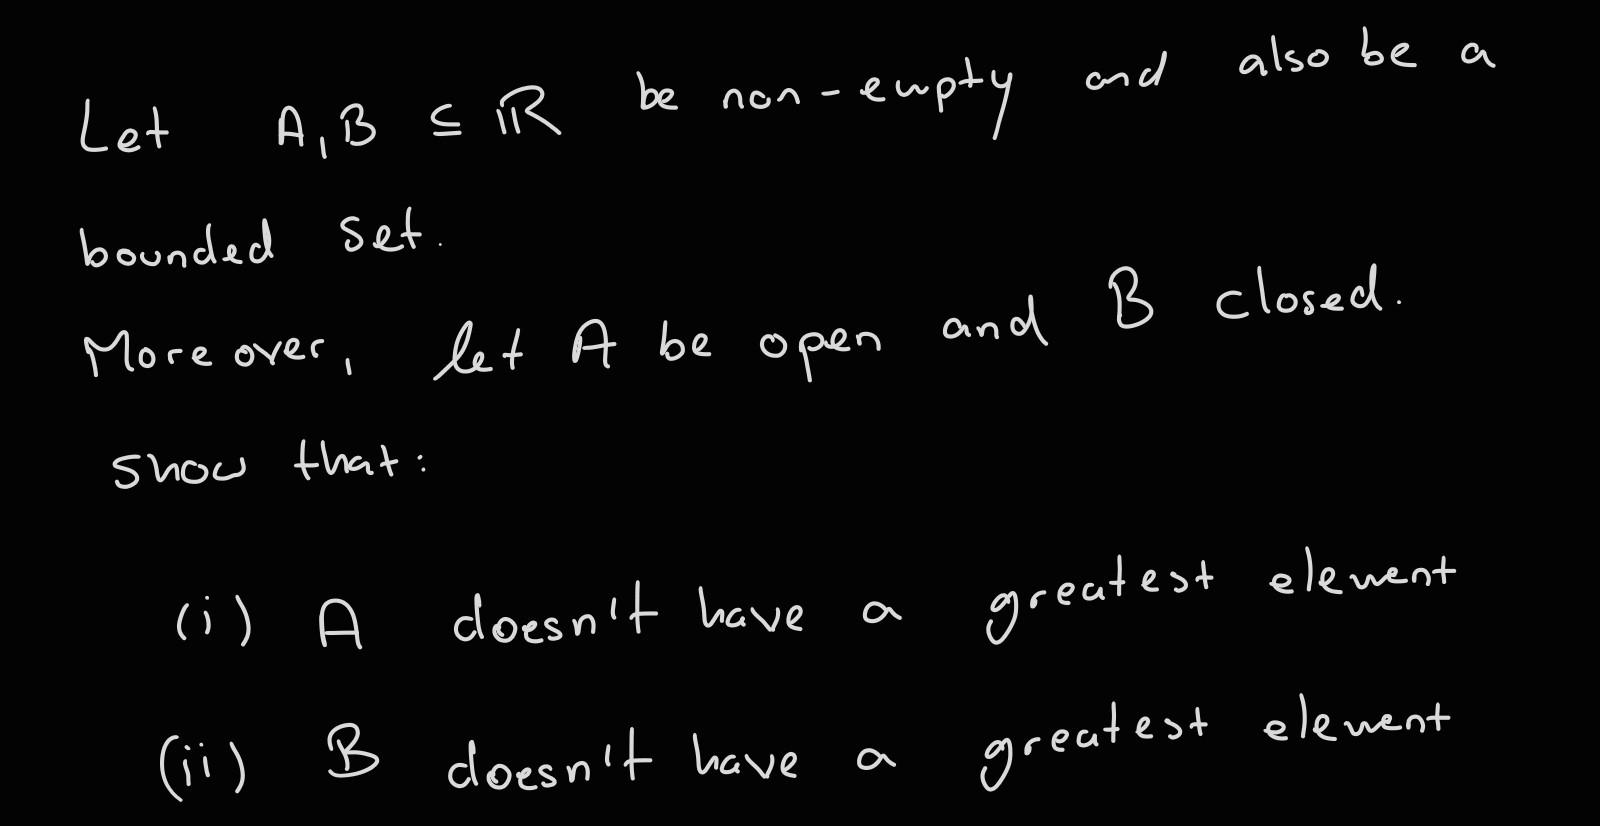 Let A, B ⊆ ℝ be non-empty and also be a
bounded set.
Moreover, let A be open and B closed.
show that:
(i) A doesn't have a greatest element
(ii) B doesn't have a greatest element